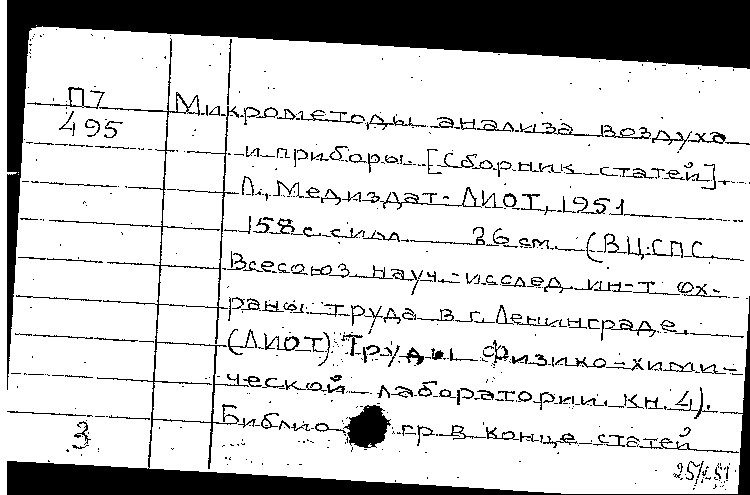 П7
495
Микрометоды анализа воздуха
и приборы. [Сборник статей].
Л., Медиздат-ЛИОТ, 1951
158 с. с илл. 26 см. (ВЦСПС.
Всесоюз. науч.-исслед. ин-т ох-
раны труда в г. Ленинграде.
(ЛИОТ) Труды Физико-хими-
ческой лаборатории. кн. 4).
Библио гр в конце статей
3